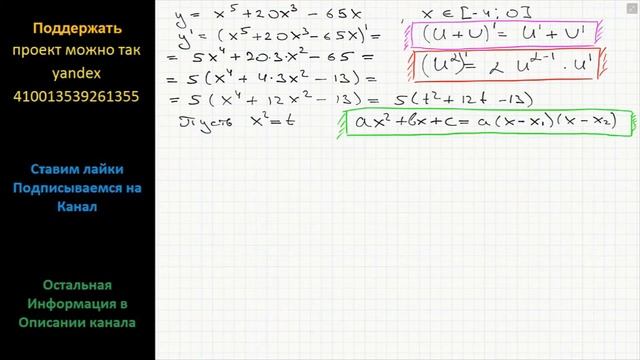 Поддержать
проект можно так
yandex
410013539261355
Ставим лайки
Подписываемся на
Канал
Остальная
Информация в
Описании канала
y = x⁵ + 20x³ − 65x , x ∈ [−4; 0]
y' = (x⁵ + 20x³ − 65x)' =
= 5x⁴ + 20·3·x² − 65 =
= 5(x⁴ + 4·3x² − 13) =
= 5(x⁴ + 12x² − 13) = 5(t² + 12t − 13)
Пусть x² = t
(U + U)' = U' + U'
(U^α)' = α U^(α−1) · U'
ax² + bx + c = a(x − x₁)(x − x₂)